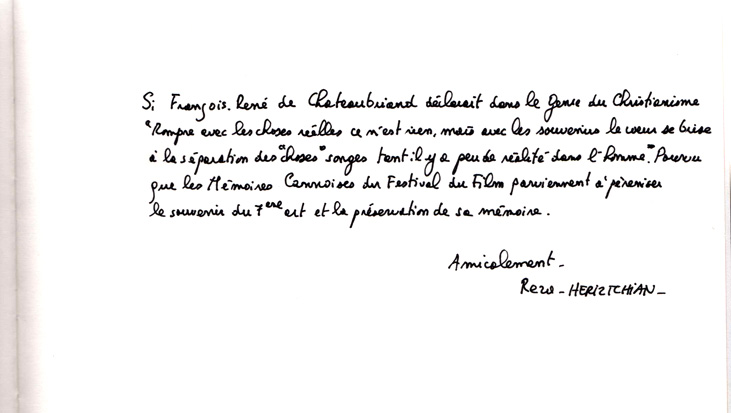 Si François. René de Chateaubriand déclarait dans le Genie du Christianisme
"Rompre avec les choses réelles ce n'est rien, mais avec les souvenirs le cœur se brise
à la séparation des "choses" songes tant il y a peu de réalité dans l'homme." Pourvu
que les Mémoires Cannoises du Festival du Film parviennent à péreniser
le souvenir du 7ème art et la préservation de sa mémoire.
Amicalement -